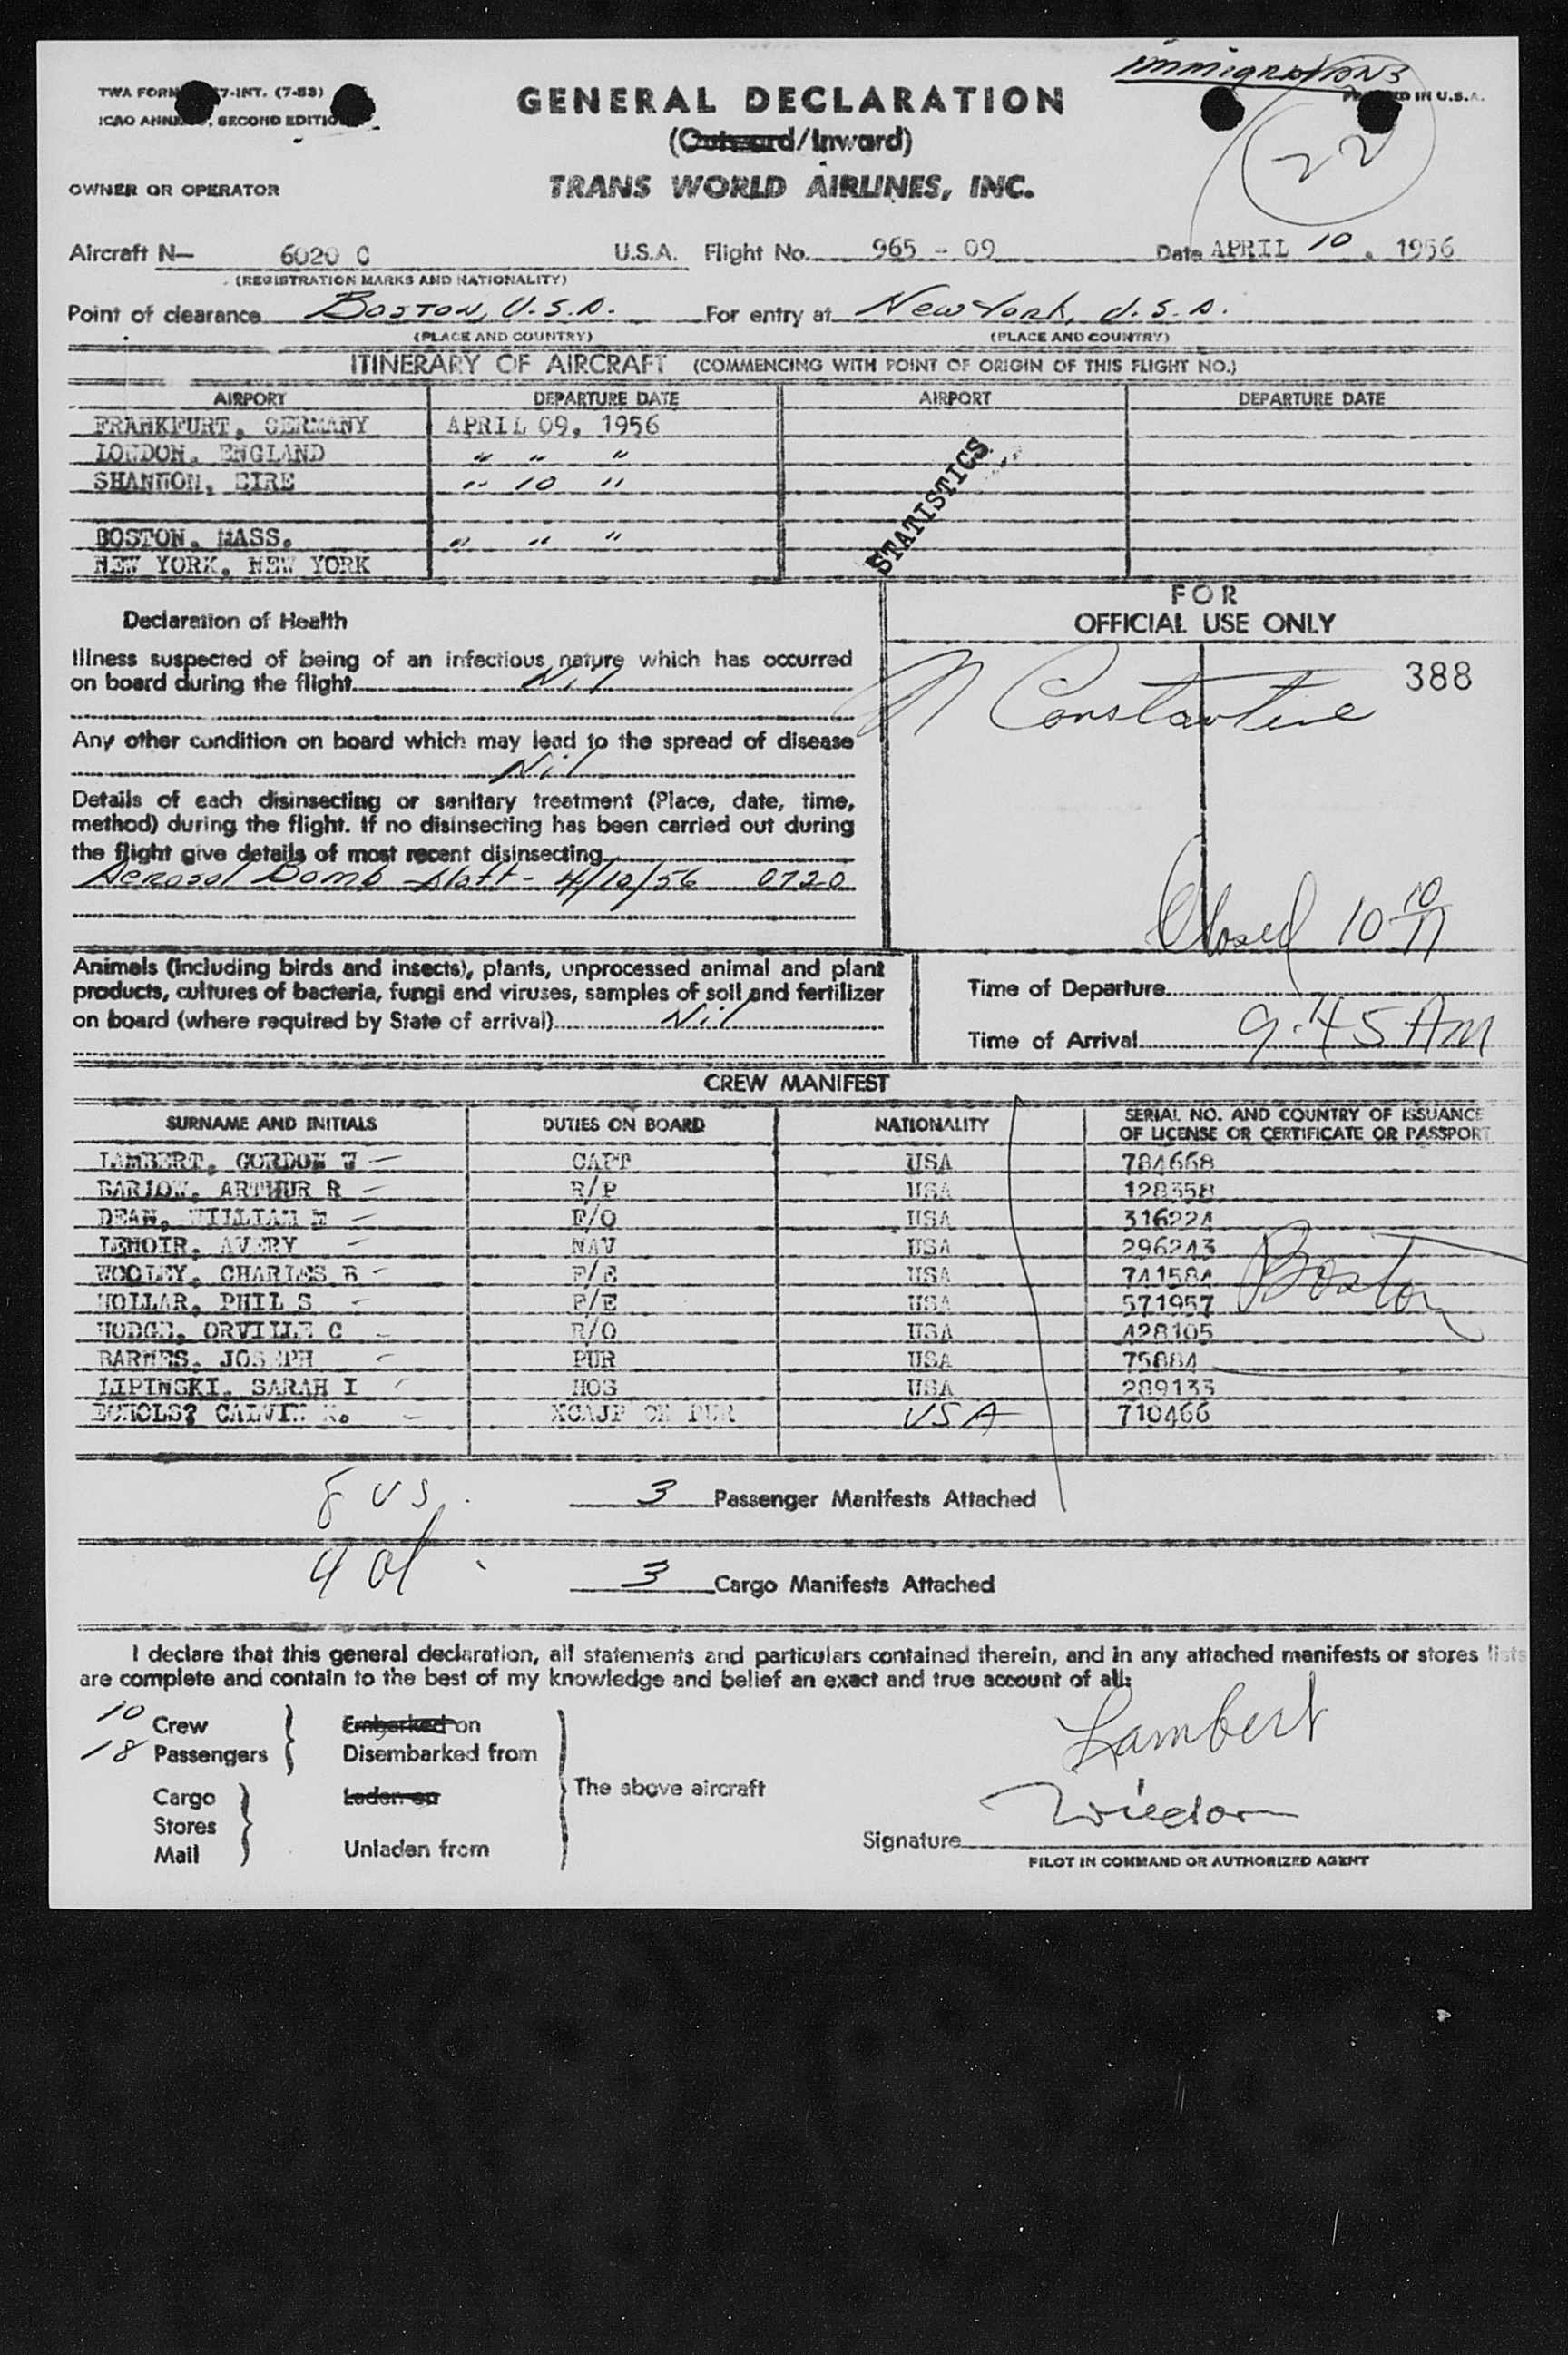 immigrations
TWA FORM 7-INT. (7-53)
ICAO ANNEX , SECOND EDITION
GENERAL DECLARATION
IN U.S.A.
(Outward/Inward)
22
OWNER OR OPERATOR
TRANS WORLD AIRLINES, INC.
Aircraft N— 6020 C U.S.A. Flight No. 965 - 09 Date APRIL 10, 1956
(REGISTRATION MARKS AND NATIONALITY)
Point of clearance Boston, U.S.A. For entry at New York, U.S.A.
(PLACE AND COUNTRY) (PLACE AND COUNTRY)
ITINERARY OF AIRCRAFT (COMMENCING WITH POINT OF ORIGIN OF THIS FLIGHT NO.)
AIRPORT DEPARTURE DATE AIRPORT DEPARTURE DATE
FRANKFURT, GERMANY APRIL 09, 1956
LONDON, ENGLAND " " "
SHANNON, EIRE " 10 "
BOSTON, MASS. " " "
NEW YORK, NEW YORK
STATISTICS
FOR
OFFICIAL USE ONLY
388
N Constantine
Closed 10 10/11
Declaration of Health
Illness suspected of being of an infectious nature which has occurred
on board during the flight Nil
Any other condition on board which may lead to the spread of disease
Nil
Details of each disinsecting or sanitary treatment (Place, date, time,
method) during the flight. If no disinsecting has been carried out during
the flight give details of most recent disinsecting
Aerosol Bomb - 4/10/56 0720
Animals (including birds and insects), plants, unprocessed animal and plant
products, cultures of bacteria, fungi and viruses, samples of soil and fertilizer
on board (where required by State of arrival) Nil
Time of Departure
Time of Arrival 9:45 AM
CREW MANIFEST
SURNAME AND INITIALS DUTIES ON BOARD NATIONALITY SERIAL NO. AND COUNTRY OF ISSUANCE
OF LICENSE OR CERTIFICATE OR PASSPORT
LAMBERT, GORDON W CAPT USA 784668
BARLOW, ARTHUR R R/P USA 128358
DEAN, WILLIAM E F/O USA 316224
LEMOIR, AVERY NAV USA 296243
WOOLEY, CHARLES B F/E USA 741584
HOLLAR, PHIL S F/E USA 571957
HODGE, ORVILLE C R/O USA 428105
BARNES, JOSEPH PUR USA 75884
LIPINSKI, SARAH I HOS USA 289133
ECHOLS? CALVIN K. PUR USA 710466
Boston
8 US
3 Passenger Manifests Attached
3 Cargo Manifests Attached
I declare that this general declaration, all statements and particulars contained therein, and in any attached manifests or stores lists
are complete and contain to the best of my knowledge and belief an exact and true account of all:
10 Crew Embarked on
18 Passengers Disembarked from
Cargo Laden on The above aircraft
Stores
Mail Unladen from
Lambert
Signature
PILOT IN COMMAND OR AUTHORIZED AGENT